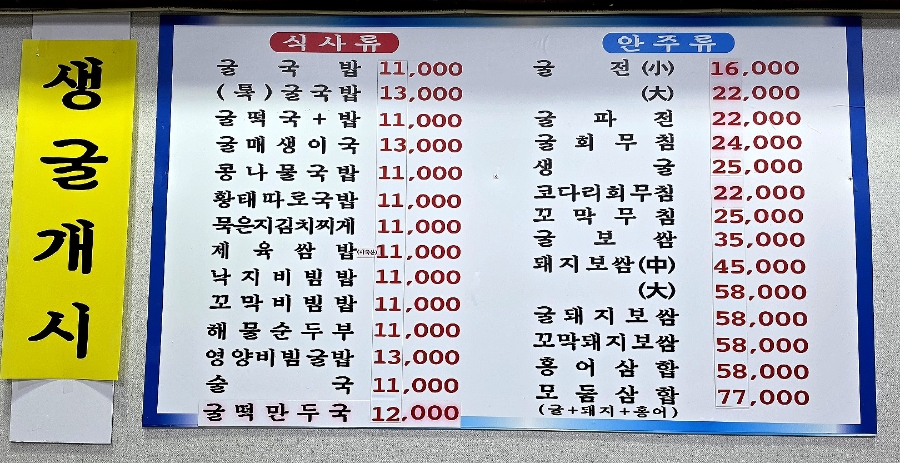 생굴개시
식사류
굴국밥 11,000
(특)굴국밥 13,000
굴떡국+밥 11,000
굴매생이국 13,000
콩나물국밥 11,000
황태따로국밥 11,000
묵은지김치찌게 11,000
제육쌈밥 11,000
낙지비빔밥 11,000
꼬막비빔밥 11,000
해물순두부 11,000
영양비빔굴밥 13,000
술국 11,000
굴떡만두국 12,000
안주류
굴전(小) 16,000
(大) 22,000
굴파전 22,000
굴회무침 24,000
생굴 25,000
코다리회무침 22,000
꼬막무침 25,000
굴보쌈 35,000
돼지보쌈(中) 45,000
(大) 58,000
굴돼지보쌈 58,000
꼬막돼지보쌈 58,000
홍어삼합 58,000
모듬삼합 77,000
(굴+돼지+홍어)